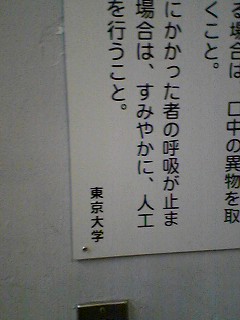 る場合は、口中の異物を取
くこと。
にかかった者の呼吸が止ま
場合は、すみやかに、人工
を行うこと。
東京大学